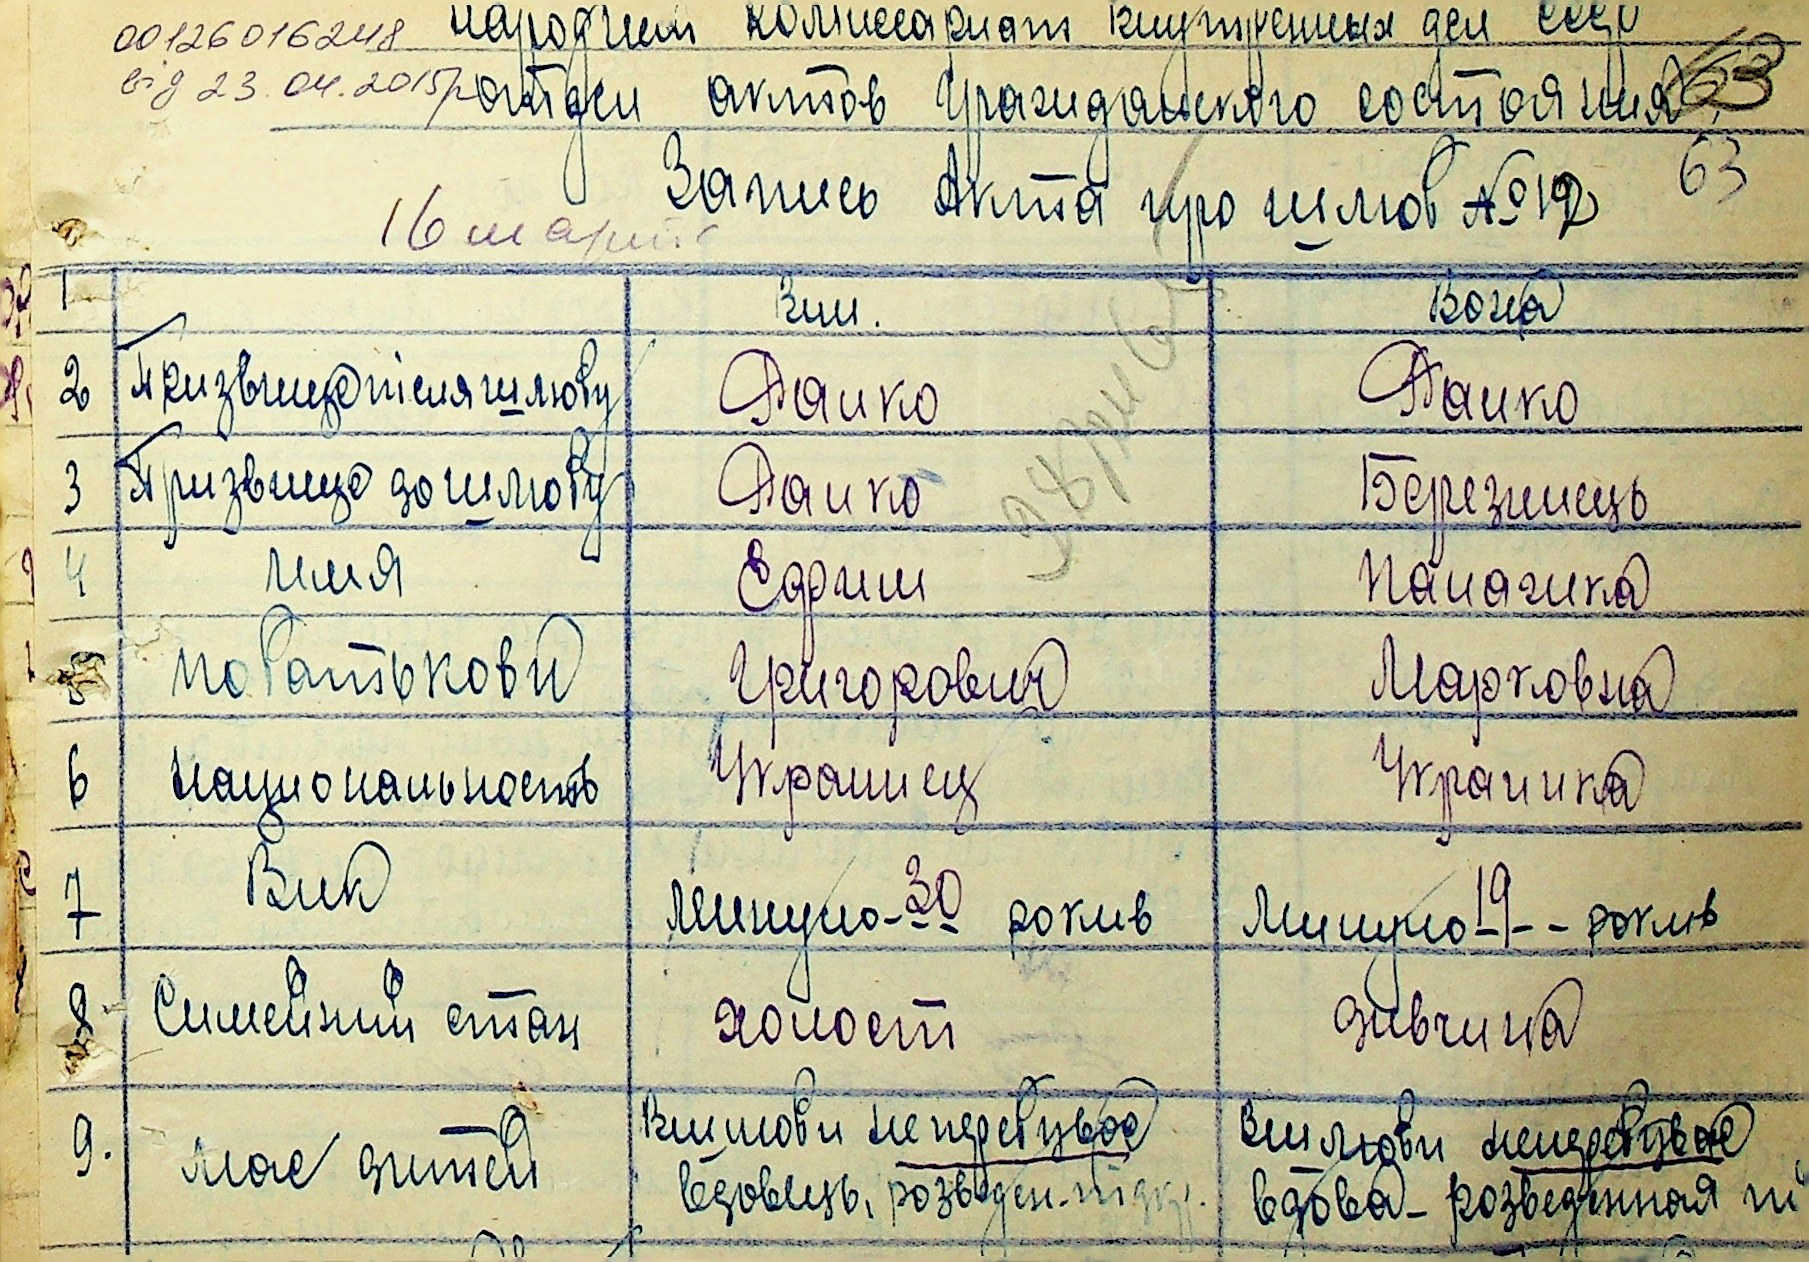 00126016248
від 23.04.2015р
народний комиссариат внутренных дел СССР
отдел актов гражданского состояния
63
Запись Акта про шлюб №12
63
16 марта
1 Вин. Вона
2 Призвище писля шлюбу Далко Далко
3 Призвище до шлюбу Далко Березнець
4 имя Ефрим Палажка
5 по батькови Григорович Марковна
6 национальность Украинец Украинка
7 Вик Минуло - 30 роков Минуло 19 - - роков
8. Симейний стан холост дивчина
9. мае дитей В шлюби не перебував В шлюби не перебувае
вдовець, розведен вдова - розведенная